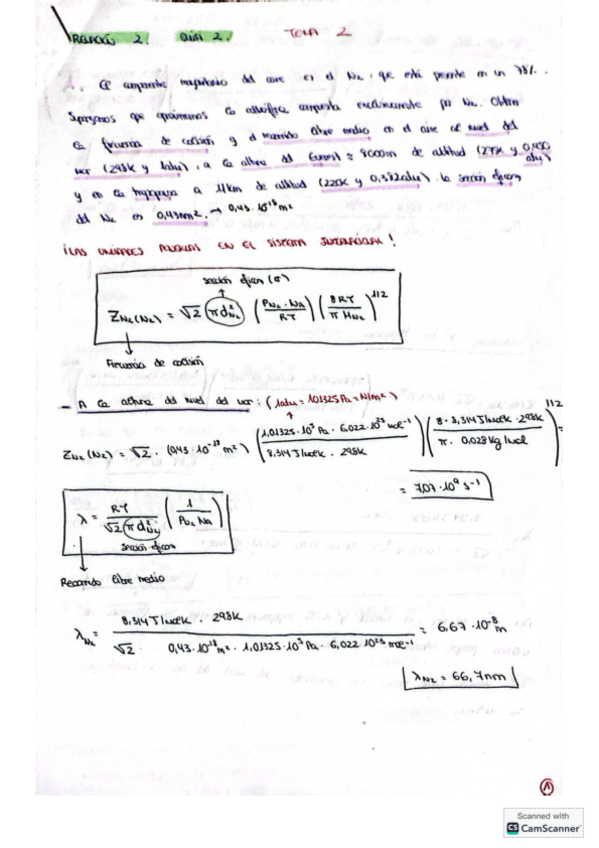 RELACIÓN 2. QUIFI 2. TEMA 2
1. El componente mayoritario del aire es el N₂, que está presente en un 78%.
Supongamos que aproximamos la atmósfera compuesta exclusivamente por N₂. Obtén
la frecuencia de colisión y el recorrido libre medio en el aire al nivel del
mar (298K y 1atm), a la altura del Everest ≈ 8000m de altitud
y en la tropopausa a 11km de altitud (220K y 0,382atm). La sección eficaz
del N₂ es 0,43nm². → 0,43·10⁻¹⁸m²
¡LAS UNIDADES EN EL SISTEMA INTERNACIONAL!
sección eficaz (σ)
Z_{N₂(N₂)} = √2 (πd²_{N₂}) (P_{N₂}·N_A / RT) (8RT / πM_{N₂})^{1/2}
Frecuencia de colisión
- A la altura del nivel del mar: (1atm = 101325Pa = N/m²)
Z_{N₂}(N₂) = √2 · (0,43·10⁻¹⁸m²) (1,01325·10⁵Pa · 6,022·10²³mol⁻¹ / 8,314J/molK · 298K) (8·8,314J/molK·298K / π·0,028kg/mol)^{1/2} =
= 7,07·10⁹ s⁻¹
λ = RT / √2 (πd²_{N₂}) (1 / P_{N₂} N_A)
sección eficaz
Recorrido libre medio
λ_{N₂} = 8,314J/molK · 298K / √2 · 0,43·10⁻¹⁸m² · 1,01325·10⁵Pa · 6,022·10²³mol⁻¹ = 6,67·10⁻⁸m
λ_{N₂} = 66,7nm
1
Scanned with
CS CamScanner